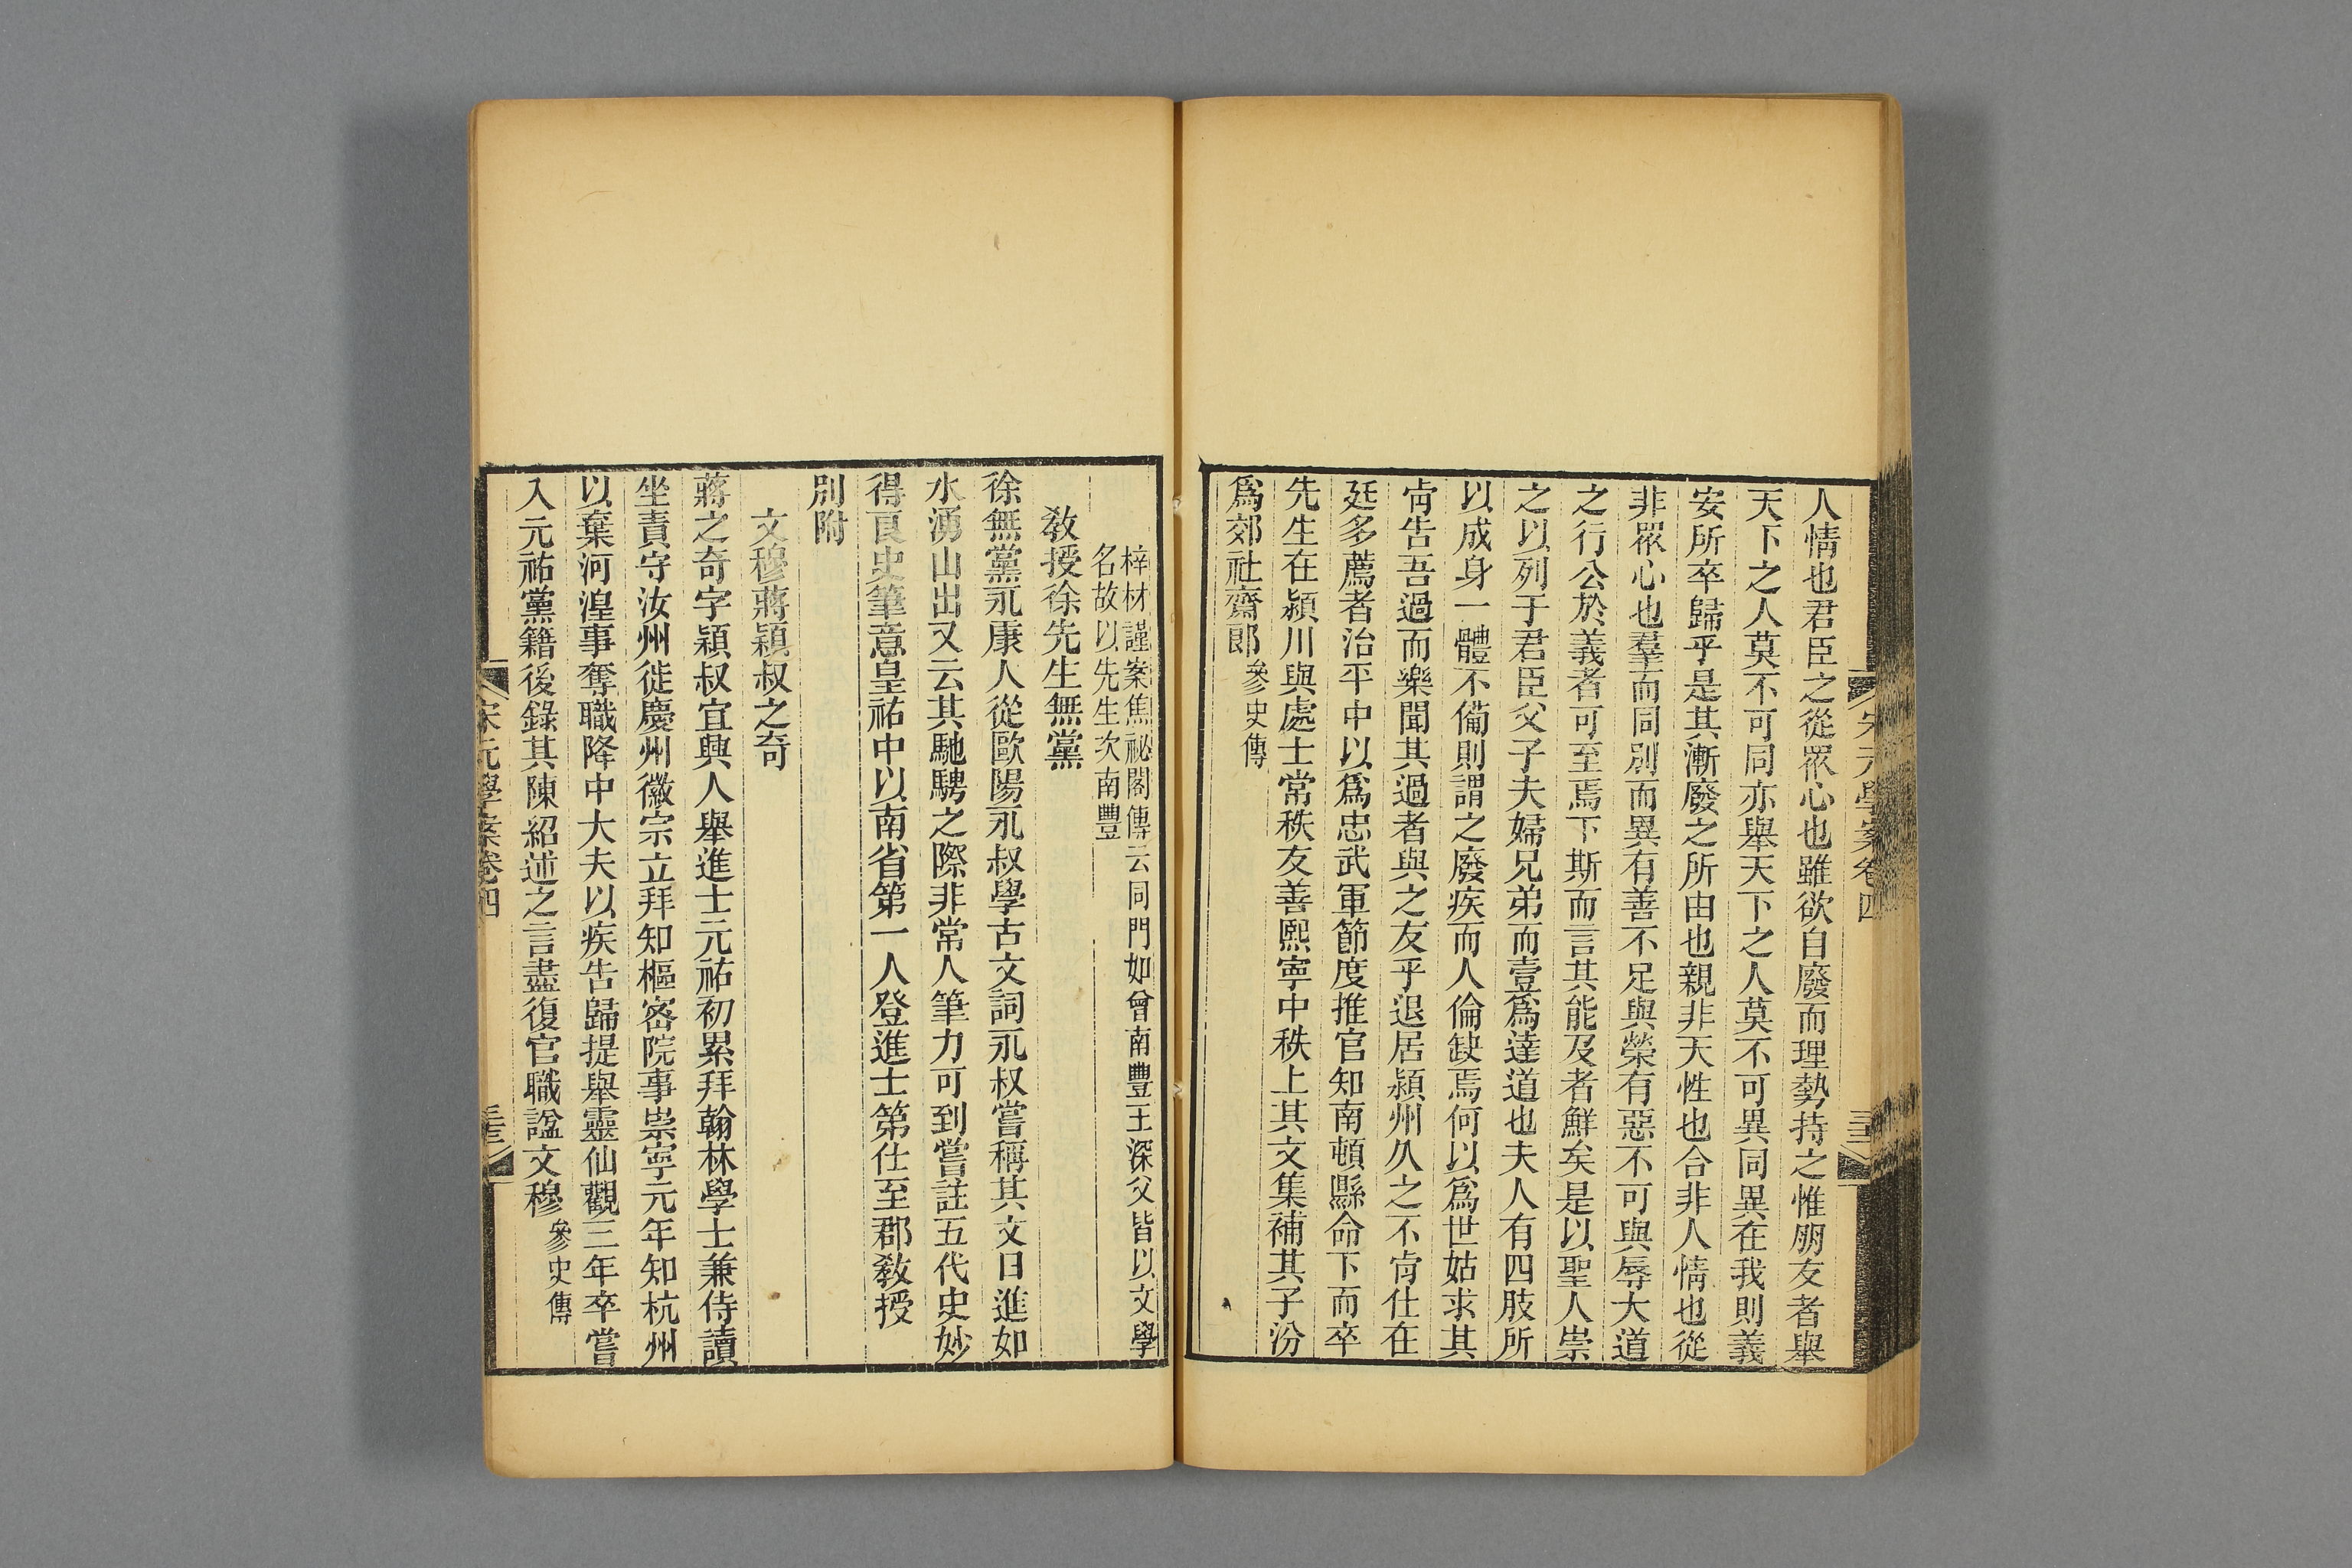 宋元學案卷四
人情也君臣之從眾心也雖欲自廢而理勢持之惟朋友者舉
天下之人莫不可同亦舉天下之人莫不可異同異在我則義
安所卒歸乎是其漸廢之所由也親非天性也合非人情也從
非眾心也羣而同別而異有善不足與榮有惡不可與辱大道
之行公於義者可至焉下斯而言其能及者鮮矣是以聖人崇
之以列于君臣父子夫婦兄弟而壹爲達道也夫人有四肢所
以成身一體不備則謂之廢疾而人倫缺焉何以爲世姑求其
肯告吾過而樂聞其過者與之友乎退居潁州久之不肯仕在
廷多薦者治平中以爲忠武軍節度推官知南頓縣命下而卒
先生在潁川與處士常秩友善熙寧中秩上其文集補其子汾
爲郊社齋郎參史傳
梓材謹案焦祕閣傳云同門如曾南豐王深父皆以文學
名故以先生次南豐
教授徐先生無黨
徐無黨永康人從歐陽永叔學古文詞永叔嘗稱其文日進如
水湧山出又云其馳騁之際非常人筆力可到嘗註五代史妙
得良史筆意皇祐中以南省第一人登進士第仕至郡教授
別附
文穆蔣穎叔之奇
蔣之奇字穎叔宜興人舉進士元祐初累拜翰林學士兼侍讀
坐責守汝州徙慶州徽宗立拜知樞密院事崇寧元年知杭州
以棄河湟事奪職降中大夫以疾告歸提舉靈仙觀三年卒嘗
入元祐黨籍後錄其陳紹述之言盡復官職諡文穆參史傳
宋元學案卷四